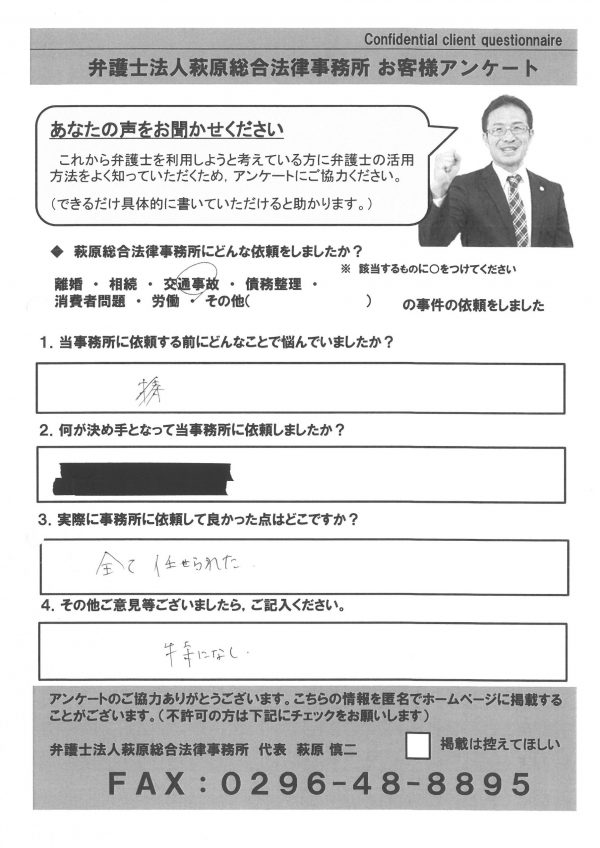 Confidential client questionnaire
弁護士法人萩原総合法律事務所 お客様アンケート
あなたの声をお聞かせください
これから弁護士を利用しようと考えている方に弁護士の活用
方法をよく知っていただくため,アンケートにご協力ください。
(できるだけ具体的に書いていただけると助かります。)
◆ 萩原総合法律事務所にどんな依頼をしましたか?
※ 該当するものに○をつけてください
離婚 ・ 相続 ・ 交通事故 ・ 債務整理 ・
消費者問題 ・ 労働 ・ その他( ) の事件の依頼をしました
1.当事務所に依頼する前にどんなことで悩んでいましたか?
2.何が決め手となって当事務所に依頼しましたか?
3.実際に事務所に依頼して良かった点はどこですか?
全て 任せられた.
4.その他ご意見等ございましたら,ご記入ください。
特になし.
アンケートのご協力ありがとうございます。こちらの情報を匿名でホームページに掲載する
ことがございます。(不許可の方は下記にチェックをお願いします)
弁護士法人萩原総合法律事務所 代表 萩原 慎二
掲載は控えてほしい
FAX:0296-48-8895